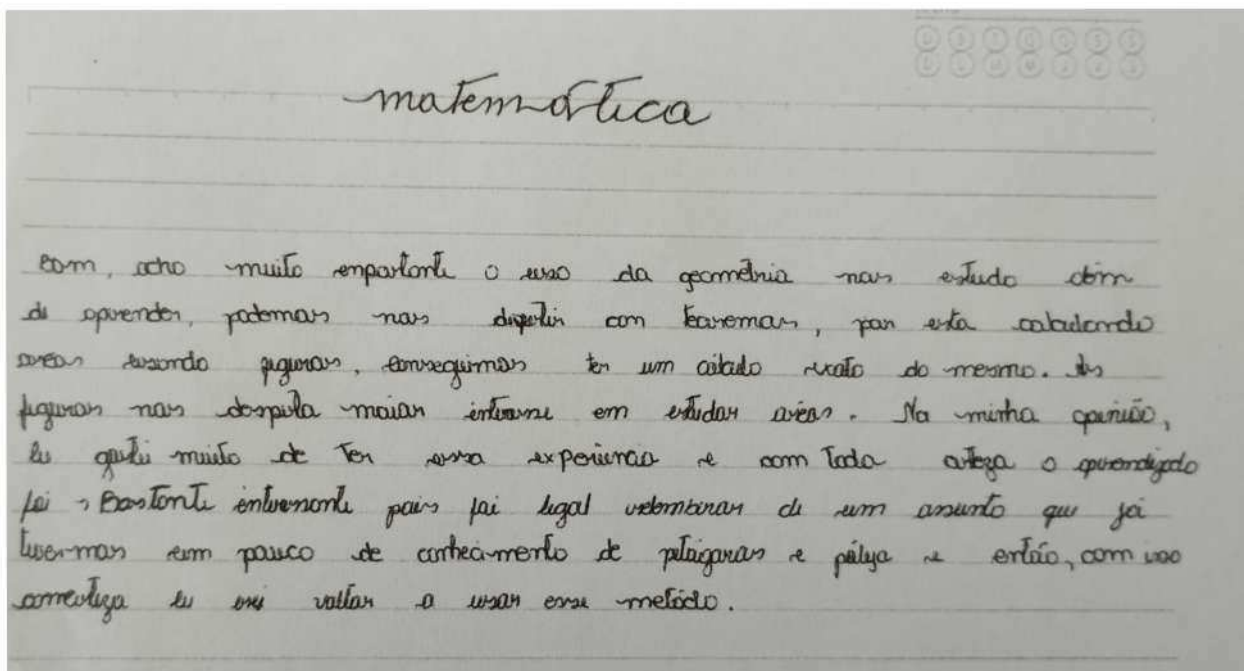 matemática
bom, acho muito emportante o uso da geometria nos estudo além
de aprender, podemos nos divertir com teoremas, por esta calculando
areas usando figuras, conseguimos ter um calculo exato do mesmo. As
figuras nos desperta maior interesse em estudar areas. Na minha opinião,
eu gostei muito de ter essa experiencia e com toda certeza o aprendizado
foi Bastante interesante pois foi legal relembrar de um assunto que já
tivermos um pouco de conhecimento de pitagoras e pólya e então, com isso
comcerteza eu irei voltar a usar esse metódo.